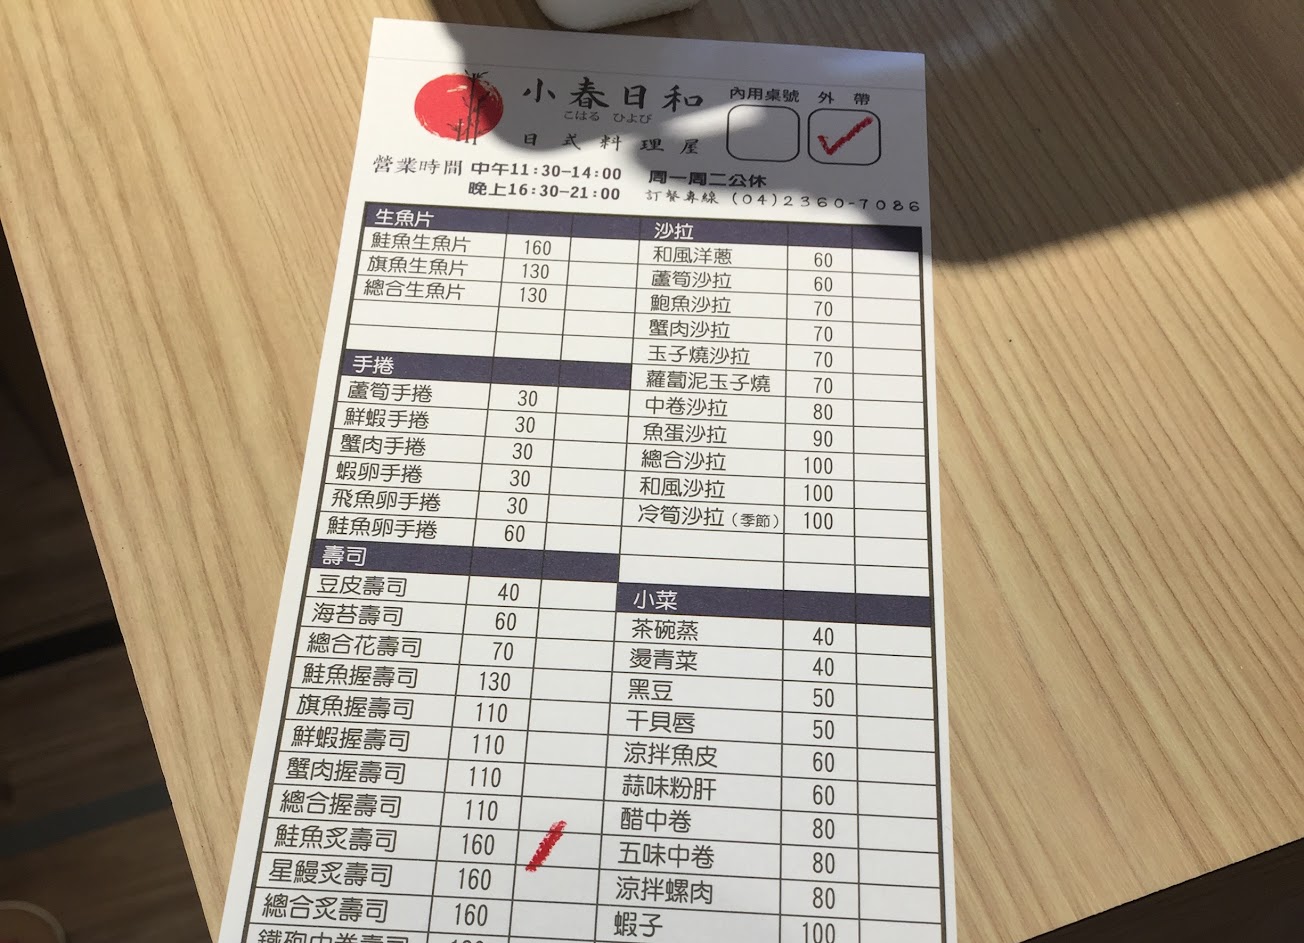 小春日和
こはる ひよび
日式料理屋
內用桌號 外帶
營業時間 中午11:30-14:00 周一周二公休
晚上16:30-21:00 訂餐專線 (04)2360-7086
生魚片
鮭魚生魚片 160
旗魚生魚片 130
總合生魚片 130
手捲
蘆筍手捲 30
鮮蝦手捲 30
蟹肉手捲 30
蝦卵手捲 30
飛魚卵手捲 30
鮭魚卵手捲 60
壽司
豆皮壽司 40
海苔壽司 60
總合花壽司 70
鮭魚握壽司 130
旗魚握壽司 110
鮮蝦握壽司 110
蟹肉握壽司 110
總合握壽司 110
鮭魚炙壽司 160
星鰻炙壽司 160
總合炙壽司 160
鐵砲中卷壽司
沙拉
和風洋蔥 60
蘆筍沙拉 60
鮑魚沙拉 70
蟹肉沙拉 70
玉子燒沙拉 70
蘿蔔泥玉子燒 70
中卷沙拉 80
魚蛋沙拉 90
總合沙拉 100
和風沙拉 100
冷筍沙拉(季節) 100
小菜
茶碗蒸 40
燙青菜 40
黑豆 50
干貝唇 50
涼拌魚皮 60
蒜味粉肝 60
醋中卷 80
五味中卷 80
涼拌螺肉 80
蝦子 100